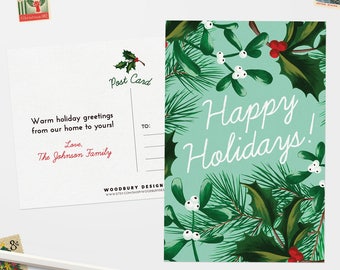 Post Card
Warm holiday greetings
from our home to yours!
Love,
The Johnson Family
TO:
WOODBURY DESIGN
Happy
Holidays!